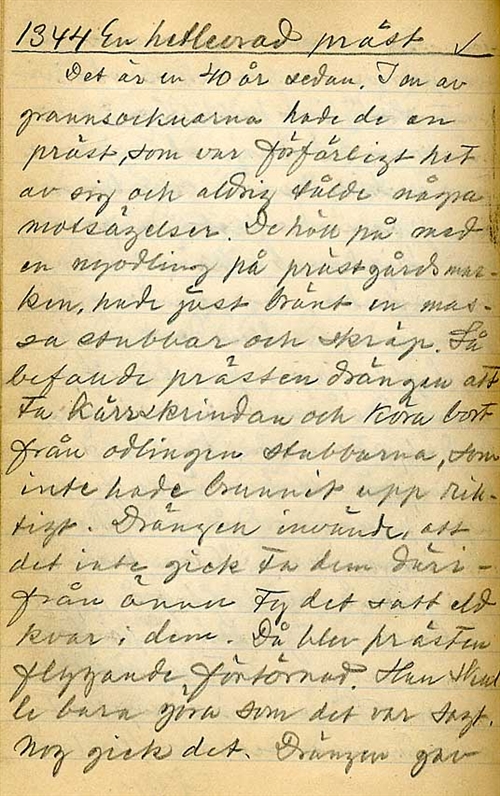 1344 En hetlevrad präst ✓
Det är en 40 år sedan. I en av
grannsocknarna hade de en
präst, som var förfärligt het
av sig och aldrig tålde några
motsägelser. De höll på med
en nyodling på prästgårdsmar-
ken, hade just bränt en mas-
sa stubbar och skräp. Så
befallde prästen drängen att
ta kärrskrindan och köra bort
från odlingen stubbarna, som
inte hade brunnit upp rik-
tigt. Drängen invände, att
det inte gick ta dem däri-
från ännu ty det satt eld
kvar i dem. Då blev prästen
flygande förtörnad. Han skul
le bara göra som det var sagt,
nog gick det. Drängen gav